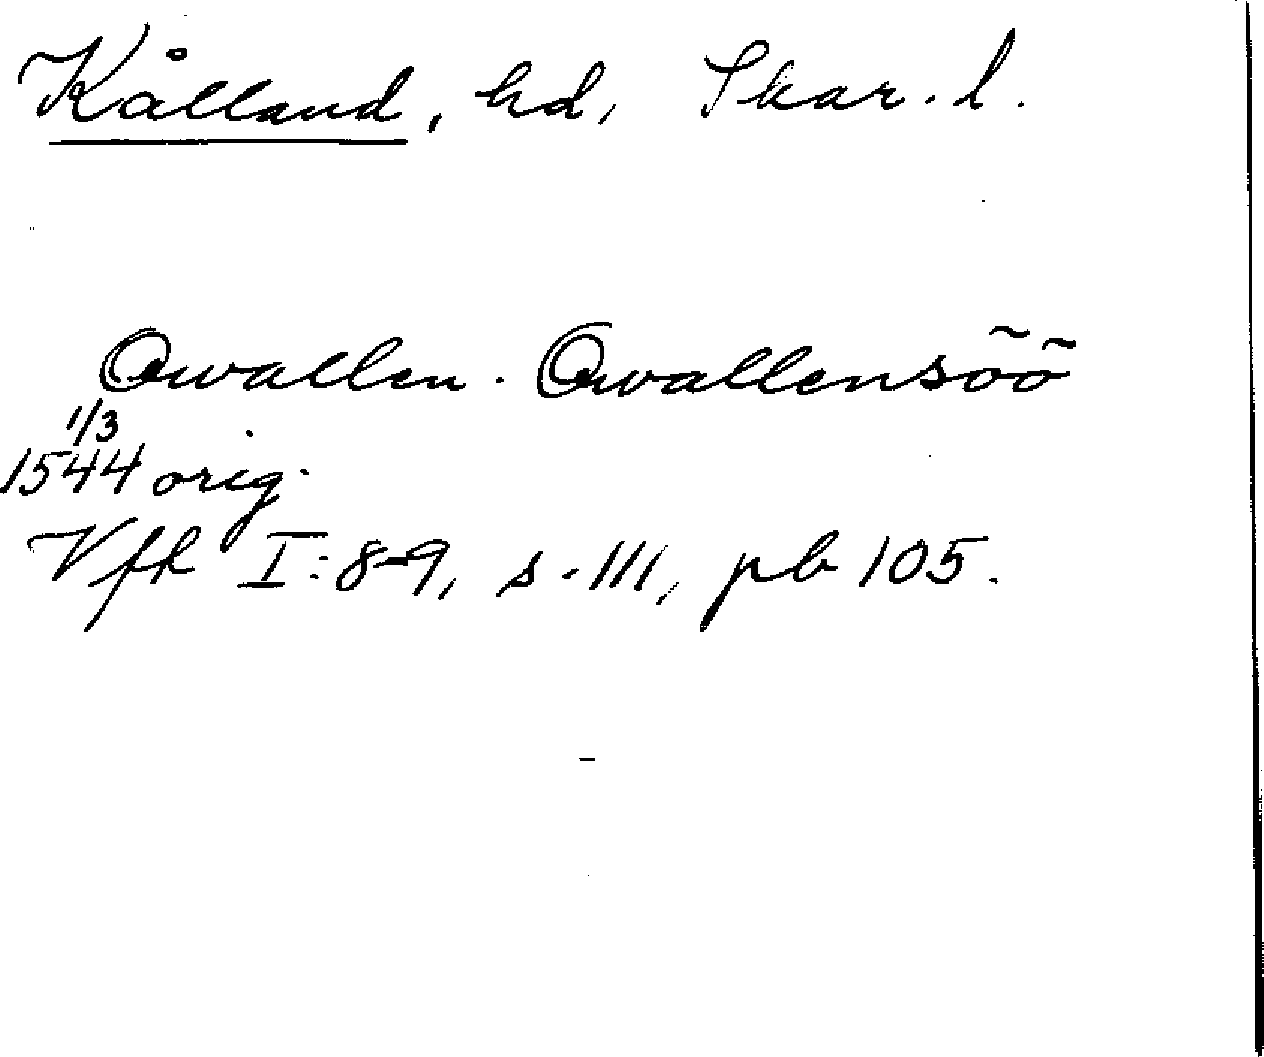 Kålland, hd, Skar. l.
Qwallen. Qwallensöö
1/3
1544 orig.
Vfk I:8-9, s. 111, pb 105.